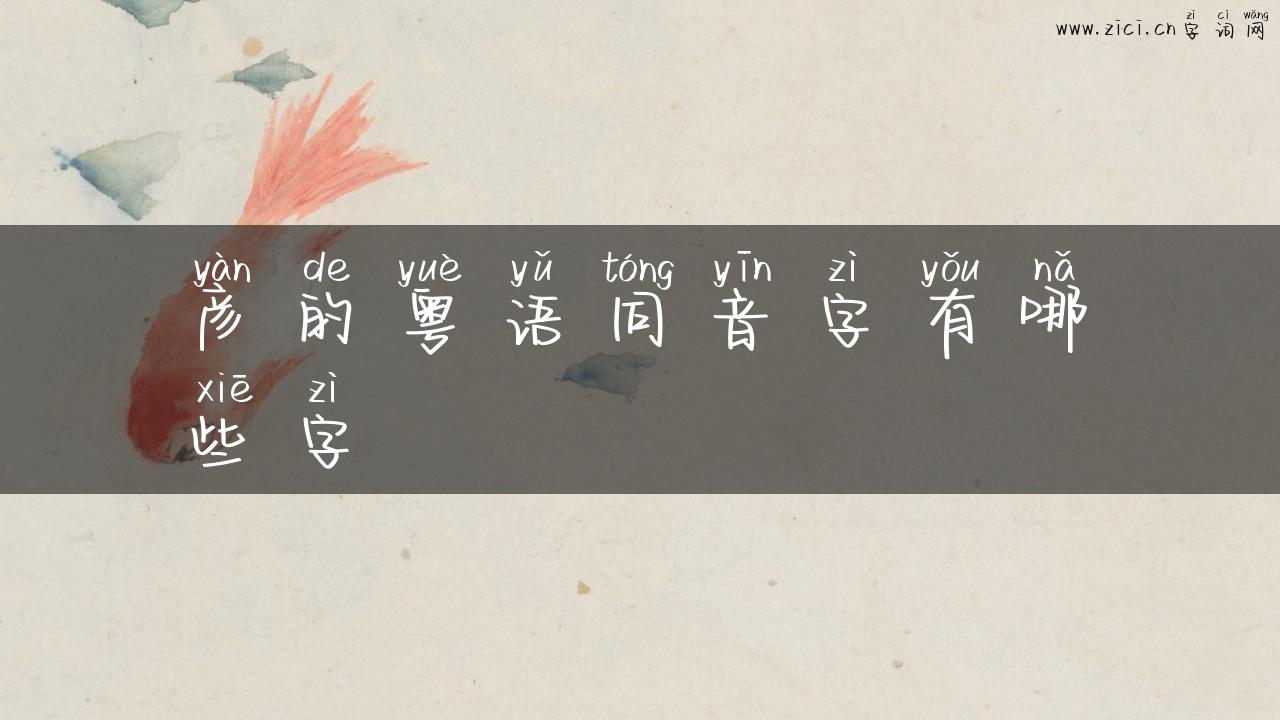 www.zici.cn zì cí wǎng
字词网
yàn de yuè yǔ tóng yīn zì yǒu nǎ
彦的粤语同音字有哪
xiē zì
些字